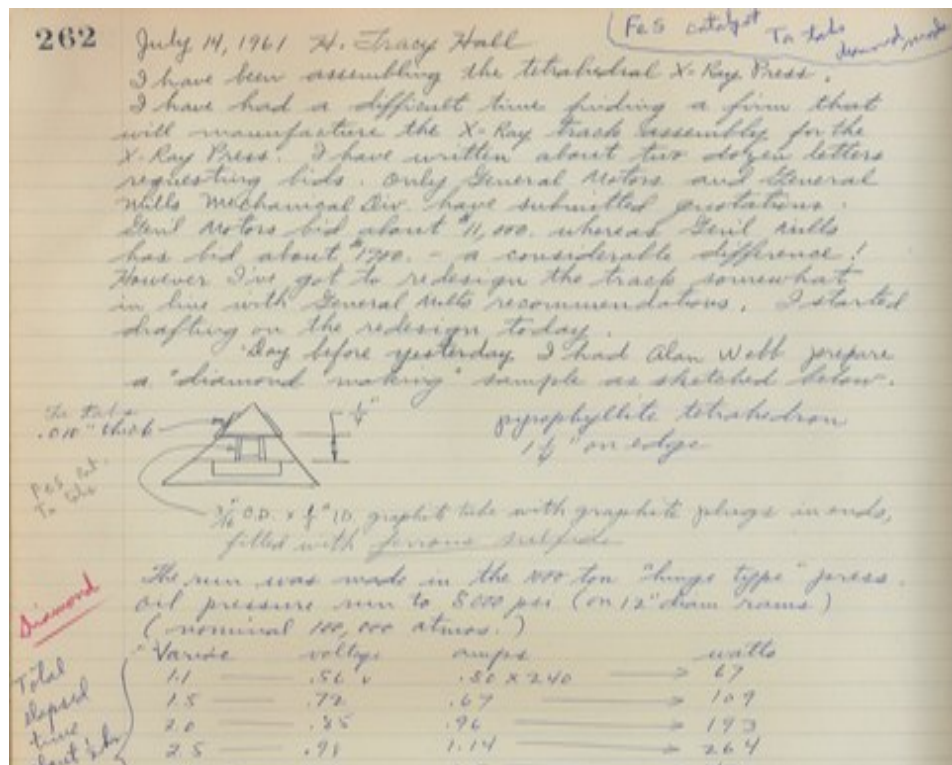 262
FeS catalyst
Ta tabs
diamond made
July 14, 1961 H. Tracy Hall
I have been assembling the tetrahedral X-Ray Press.
I have had a difficult time finding a firm that
will manufacture the X-Ray track assembly for the
X-Ray Press. I have written about two dozen letters
requesting bids. Only General Motors and General
Mills Mechanical Div. have submitted quotations.
Genl Motors bid about $11,000. whereas Genl Mills
has bid about $1700. - a considerable difference!
However I've got to redesign the track somewhat
in line with General Mills recommendations. I started
drafting on the redesign today.
Day before yesterday I had Alan Webb prepare
a "diamond making" sample as sketched below.
.010" thick
1/4"
pyrophyllite tetrahedron
1 1/4" on edge
FeS cat.
Ta tabs
3/16" O.D. x 1/8" ID. graphite tube with graphite plugs in ends,
filled with ferrous sulfide
Diamond
The run was made in the 1000 ton "hinge type" press.
oil pressure run to 8000 psi (on 12" diam rams)
(nominal 100,000 atmos.)
Total
elapsed
time
Variac voltage amps watts
1.1 .56 v .50 x 240 67
1.5 .72 .67 109
2.0 .85 .96 193
2.5 .98 1.14 264